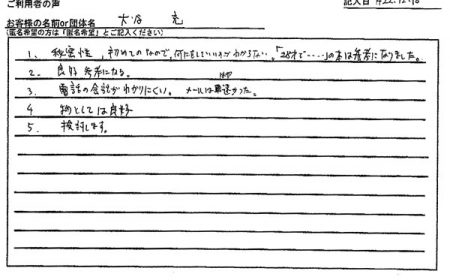 ご利用者の声
記入日 H22.12.10
お客様の名前or団体名
(匿名希望の方は「匿名希望」とご記入ください)
1. 秘密性, 初めてのなので, 何をしていいかがわからない,「28才で‥‥‥」の本は参考になりました。
2. 良好 参考になる。
3. 電話の会話がわかりにくい。 メールは早かった。
4 物としては良好
5. 検討します。